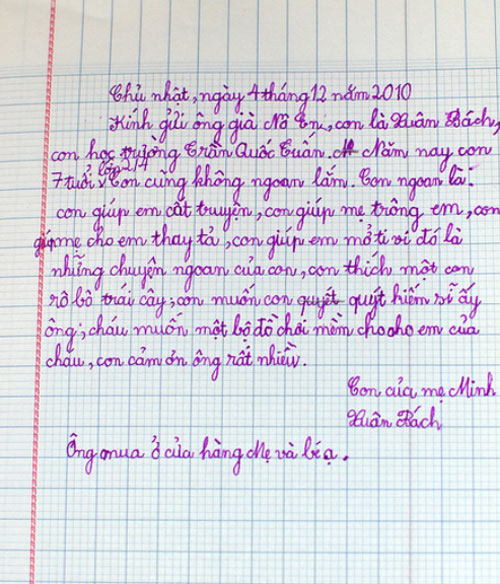 Chủ nhật, ngày 4 tháng 12 năm 2010
Kính gửi ông già Nô En, con là Xuân Bách,
con học trường Trần Quốc Tuấn. Năm nay con
lớp 2/7
7 tuổi. Con cũng không ngoan lắm. Con ngoan là:
con giúp em cất truyện, con giúp mẹ trông em, con
giúp mẹ cho em thay tả, con giúp em mở ti vi đó là
những chuyện ngoan của con, con thích một con
rô bô trái cây, con muốn con quyết quýt hiếm sĩ ấy
ông, cháu muốn một bộ đồ chơi mềm cho cho em của
cháu, con cảm ơn ông rất nhiều.
Con của mẹ Minh
Xuân Bách
Ông mua ở cửa hàng Mẹ và bé ạ.